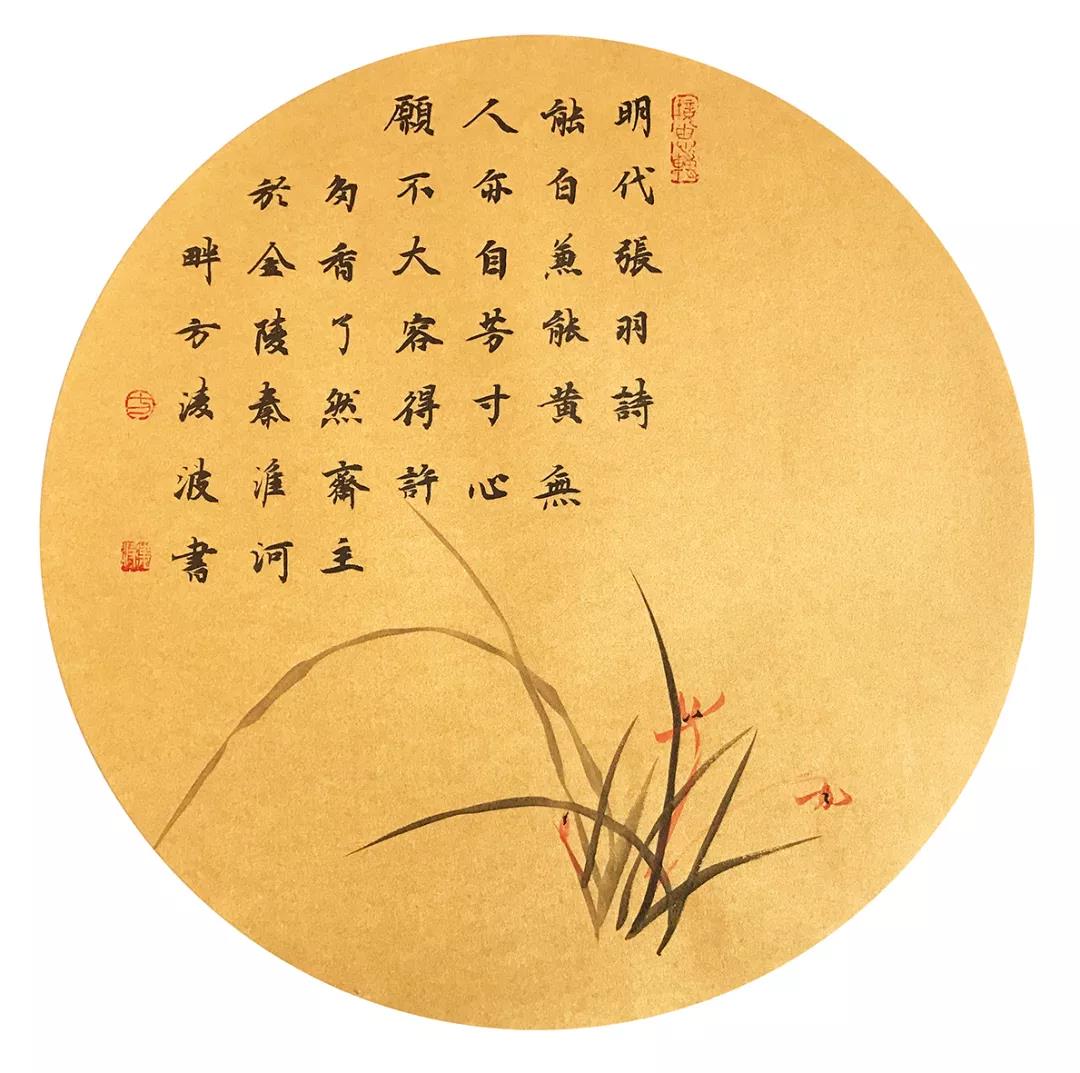 明代張羽詩
能白兼能黄無
人亦自芳寸心
願不大容得許
多香了然齋主
於金陵秦淮河
畔方淩波書